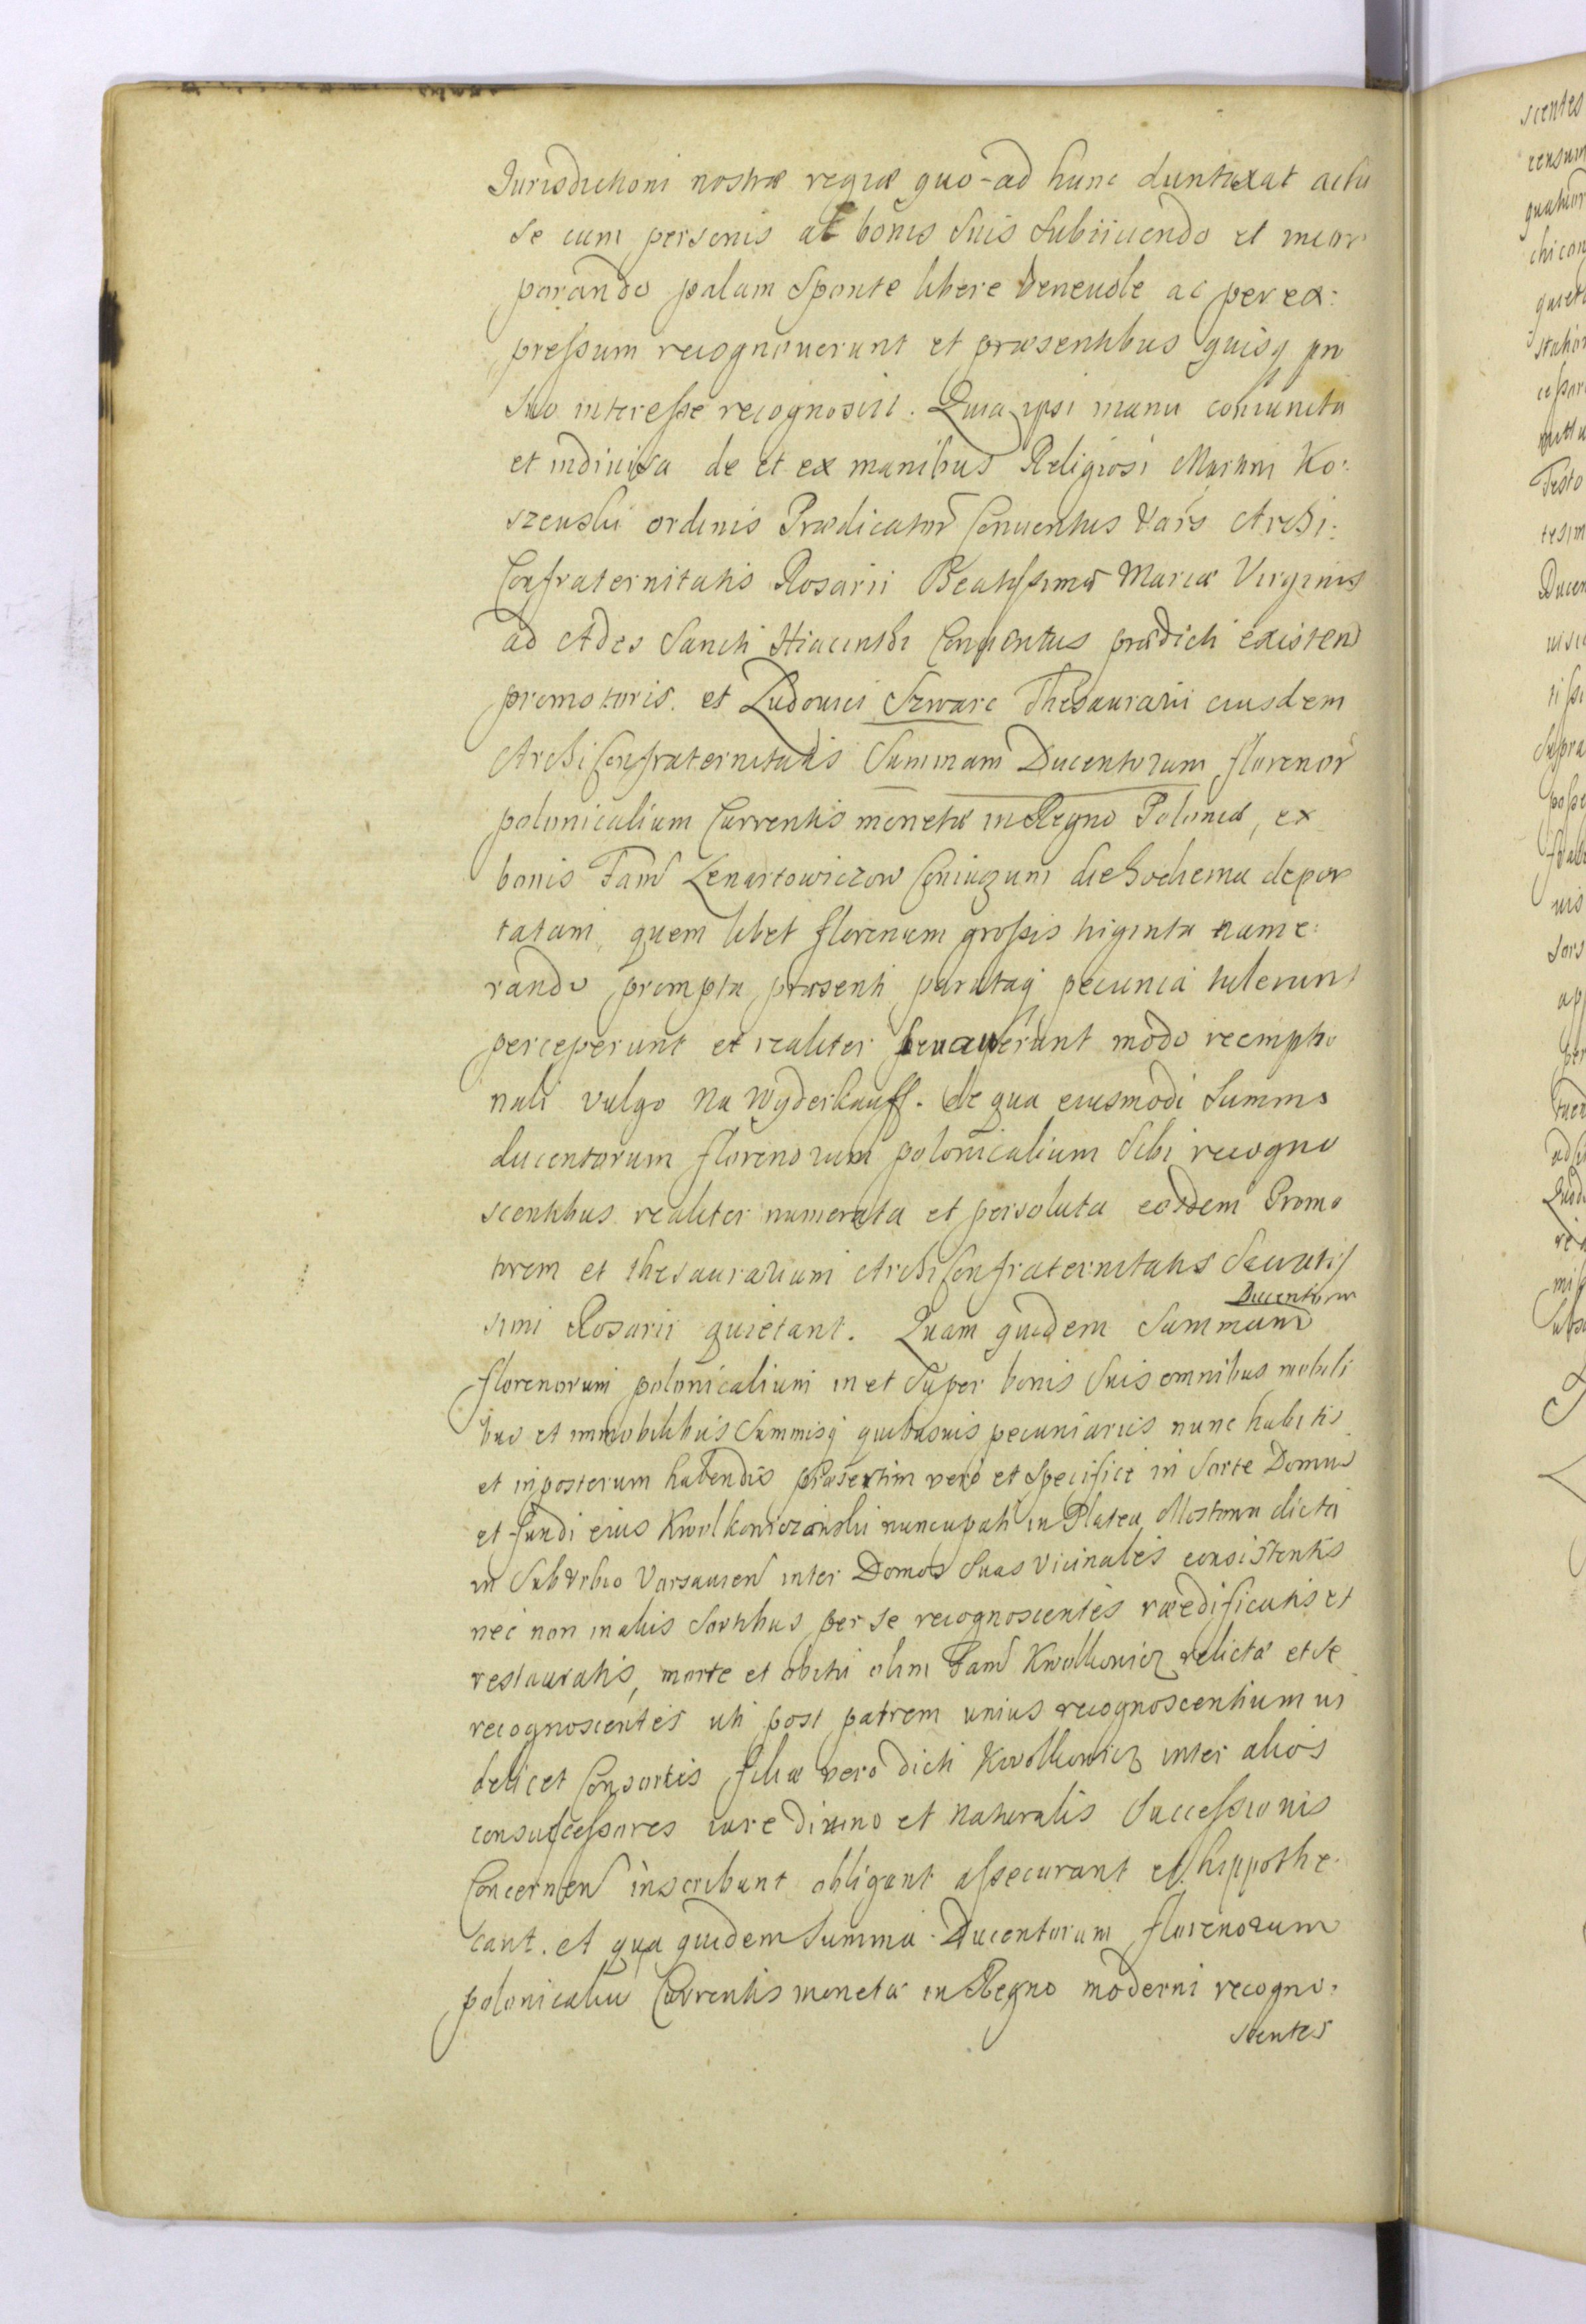 Jurisdictioni nostræ regiæ quo-ad hunc duntaxat actū
se cum personis ac bonis suis subiiciendo et incor
porando palam sponte libere beneuole ac per ex:
pressum recognouerunt et præsentibus quisq pro
suo interesse recognoscit. Quia ipsi manu coniuncta
et indiuisa de et ex manibus Religiosi Martini Ko:
szenski ordinis Prædicator Conuentus Vars Archi:
Confraternitatis Rosarii Beatissimæ Mariæ Virginis
ad Ædes Sancti Hiacinthi Conuentus prædicti existen
promotoris. et Ludouici Szwarc Thesaurarii eiusdem
Archi Confraternitatis Summam Ducentorum florenor
polonicalium Currentis monetæ in Regno Poloniæ, ex
bonis Fam Lenartowiczow Coniugum die hodierna depor
tatam, quem libet florenum grossis triginta nume:
rando prompta præsenti parataq pecunia tulerunt
perceperunt et realiter leuauerunt modo reemptio
nali vulgo na Wyderkauff. de qua eiusmodi summa
ducentorum florenorum polonicalium sibi recogno
scentibus realiter numerata et persoluta eosdem Promo
torem et Thesaurarium Archi Confraternitatis Sacratis
simi Rosarii quietant. Quam quidem summam Ducentorum
florenorum polonicalium in et super bonis suis omnibus mobili
bus et immobilibus summisq quibusuis pecuniariis nunc habitis
et inposterum habendis præsertim vero et specifice in sorte Domus
et fundi eius Kwolkowiczowski nuncupati in Platea Mostowa dicta
in Suburbio Varsauien inter Domos suas vicinales consistentis
nec non in aliis sortibus per se recognoscentes reædificatis et
restauratis, morte et obitu olim Fam Kwolkowicz relictæ et se
recognoscentes uti post patrem unius recognoscentium vi
delicet Consortis filiæ vero dicti Kwolkowicz inter alios
consuccessores iure diuino et naturalis successionis
Concernen inscribunt obligant assecurant et hippothe
cant. et qua quidem summa Ducentorum florenorum
polonicaliu Currentis monetæ in Regno moderni recogno:
scentes